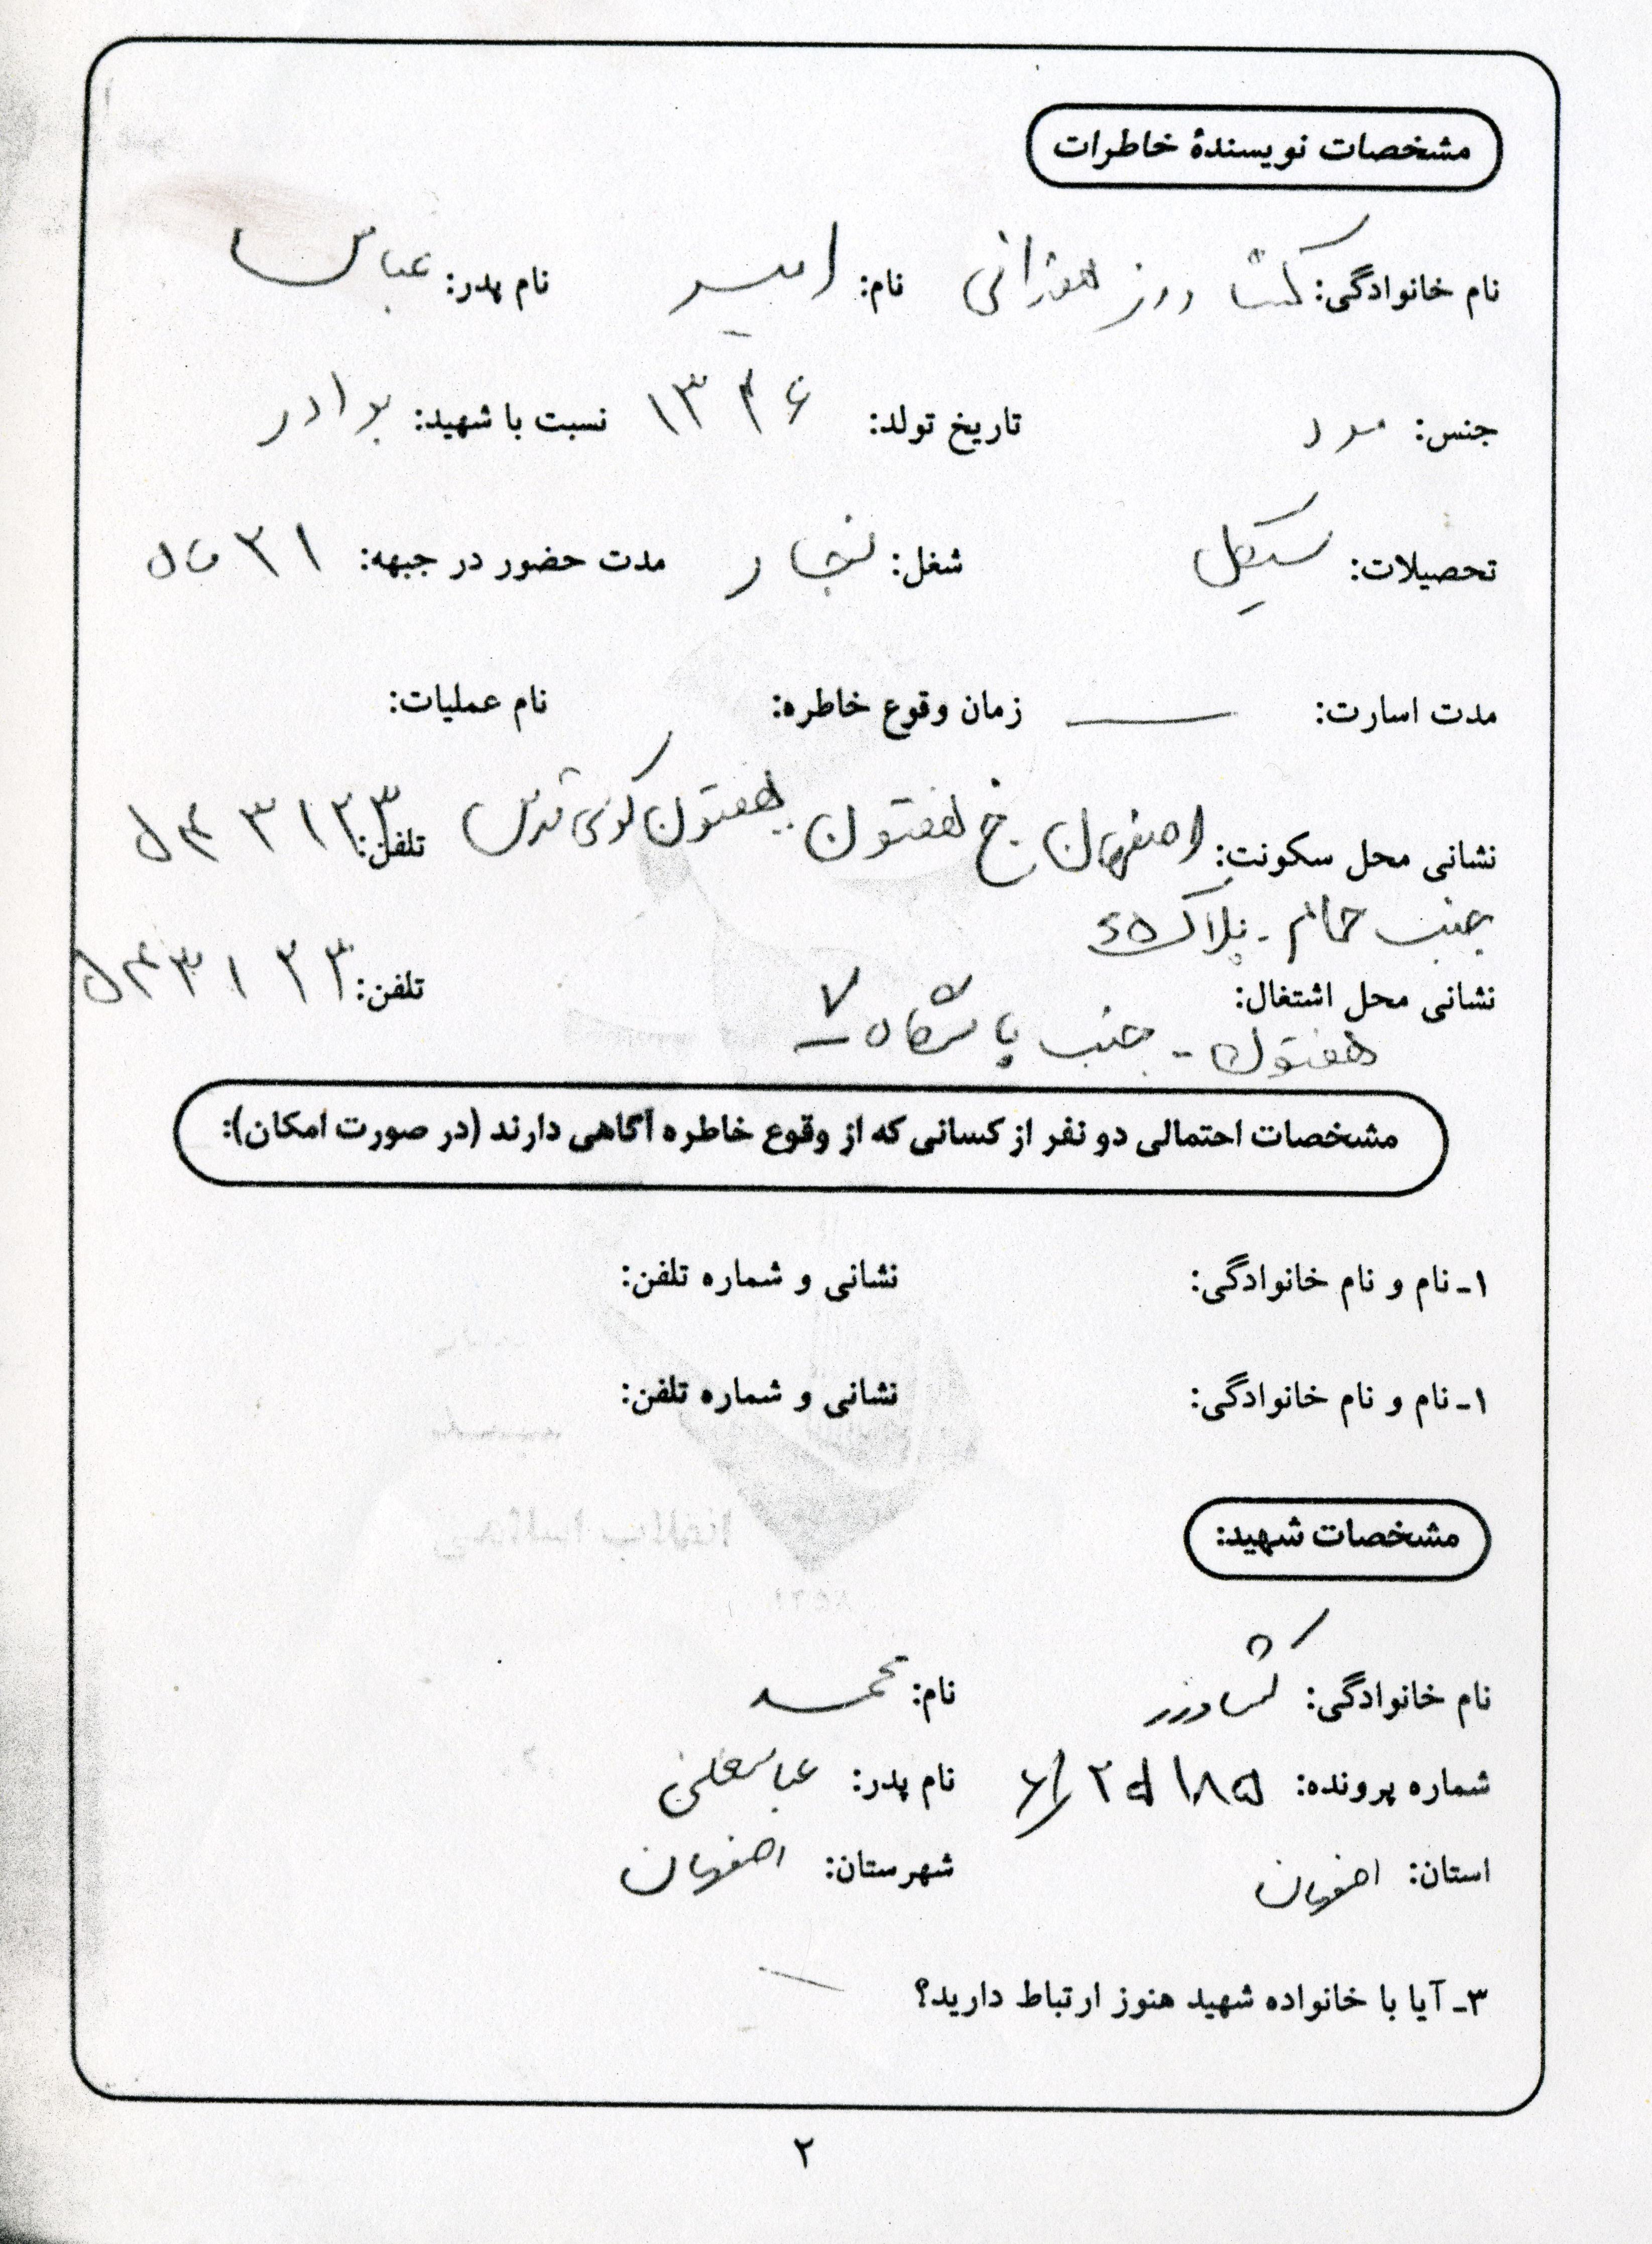 مشخصات نویسندهٔ خاطرات
نام خانوادگی: کشاورز هفتانی نام: امیر نام پدر: عباس
جنس: مرد تاریخ تولد: ۱۳۴۶ نسبت با شهید: برادر
تحصیلات: سیکل شغل: نجار مدت حضور در جبهه: ۳۱ ماه
مدت اسارت: — زمان وقوع خاطره: نام عملیات:
نشانی محل سکونت: اصفهان خ هفتون هفتون کوی قدس تلفن: ۵۴۳۱۲۳
جنب حمام - پلاک ۶۵
نشانی محل اشتغال: تلفن: ۵۴۳۱۲۳
هفتون - جنب پاسگاه ۷
مشخصات احتمالی دو نفر از کسانی که از وقوع خاطره آگاهی دارند (در صورت امکان):
۱ـ نام و نام خانوادگی: نشانی و شماره تلفن:
۱ـ نام و نام خانوادگی: نشانی و شماره تلفن:
مشخصات شهید:
نام خانوادگی: کشاورز نام: محمد
شماره پرونده: نام پدر: عباسعلی
استان: اصفهان شهرستان: اصفهان
۳ـ آیا با خانواده شهید هنوز ارتباط دارید؟
۲